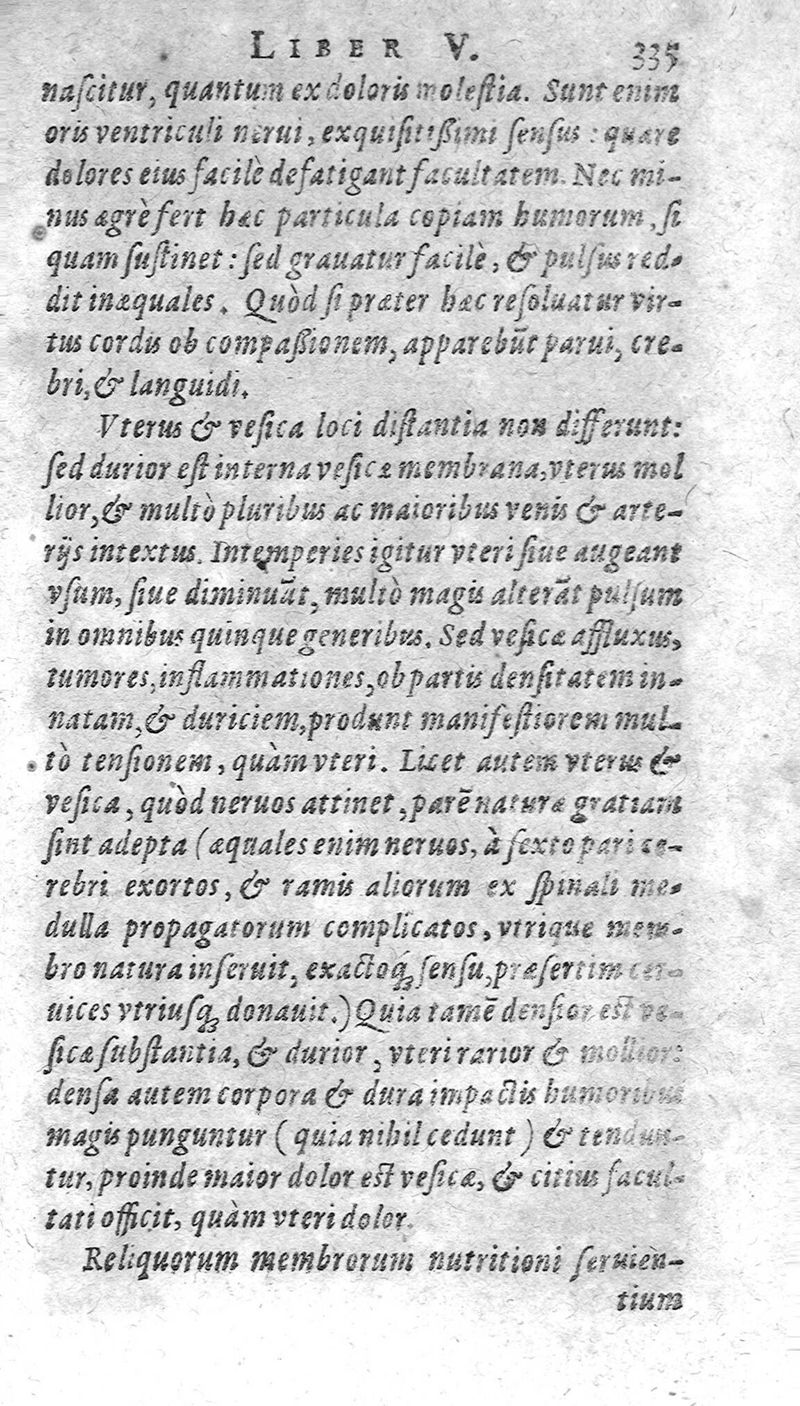 LIBER V. 335
naſcitur, quantum ex doloris moleſtia. Sunt enim
oris ventriculi nerui, exquiſitißimi ſenſus : quare
dolores eius facilè defatigant facultatem. Nec mi-
nus ægrè fert hæc particula copiam humorum, ſi
quam ſuſtinet : ſed grauatur facilè, & pulſus red-
dit inæquales. Quòd ſi præter hæc reſoluatur vir-
tus cordis ob compaßionem, apparebũt parui, cre-
bri, & languidi.
Vterus & veſica loci diſtantia non differunt:
ſed durior eſt interna veſicæ membrana, vterus mol
lior, & multò pluribus ac maioribus venis & arte-
rijs intextus. Intemperies igitur vteri ſiue augeant
vſum, ſiue diminuãt, multò magis alterãt pulſum
in omnibus quinque generibus. Sed veſicæ affluxus,
tumores, inflammationes, ob partis denſitatem in-
natam, & duriciem, produnt manifeſtiorem mul-
tò tenſionem, quàm vteri. Licet autem vterus &
veſica, quòd neruos attinet, parẽ naturæ gratiam
ſint adepta (æquales enim neruos, à ſexto pari ce-
rebri exortos, & ramis aliorum ex ſpinali me-
dulla propagatorum complicatos, vtrique mem-
bro natura inſeruit, exactoq; ſenſu, præſertim cer-
uices vtriuſq; donauit.) Quia tamẽ denſior eſt ve-
ſicæ ſubſtantia, & durior, vteri rarior & mollior:
denſa autem corpora & dura impactis humoribus
magis punguntur ( quia nihil cedunt ) & tendun-
tur, proinde maior dolor eſt veſicæ, & citius facul-
tati officit, quàm vteri dolor.
Reliquorum membrorum nutritioni ſeruien-
tium